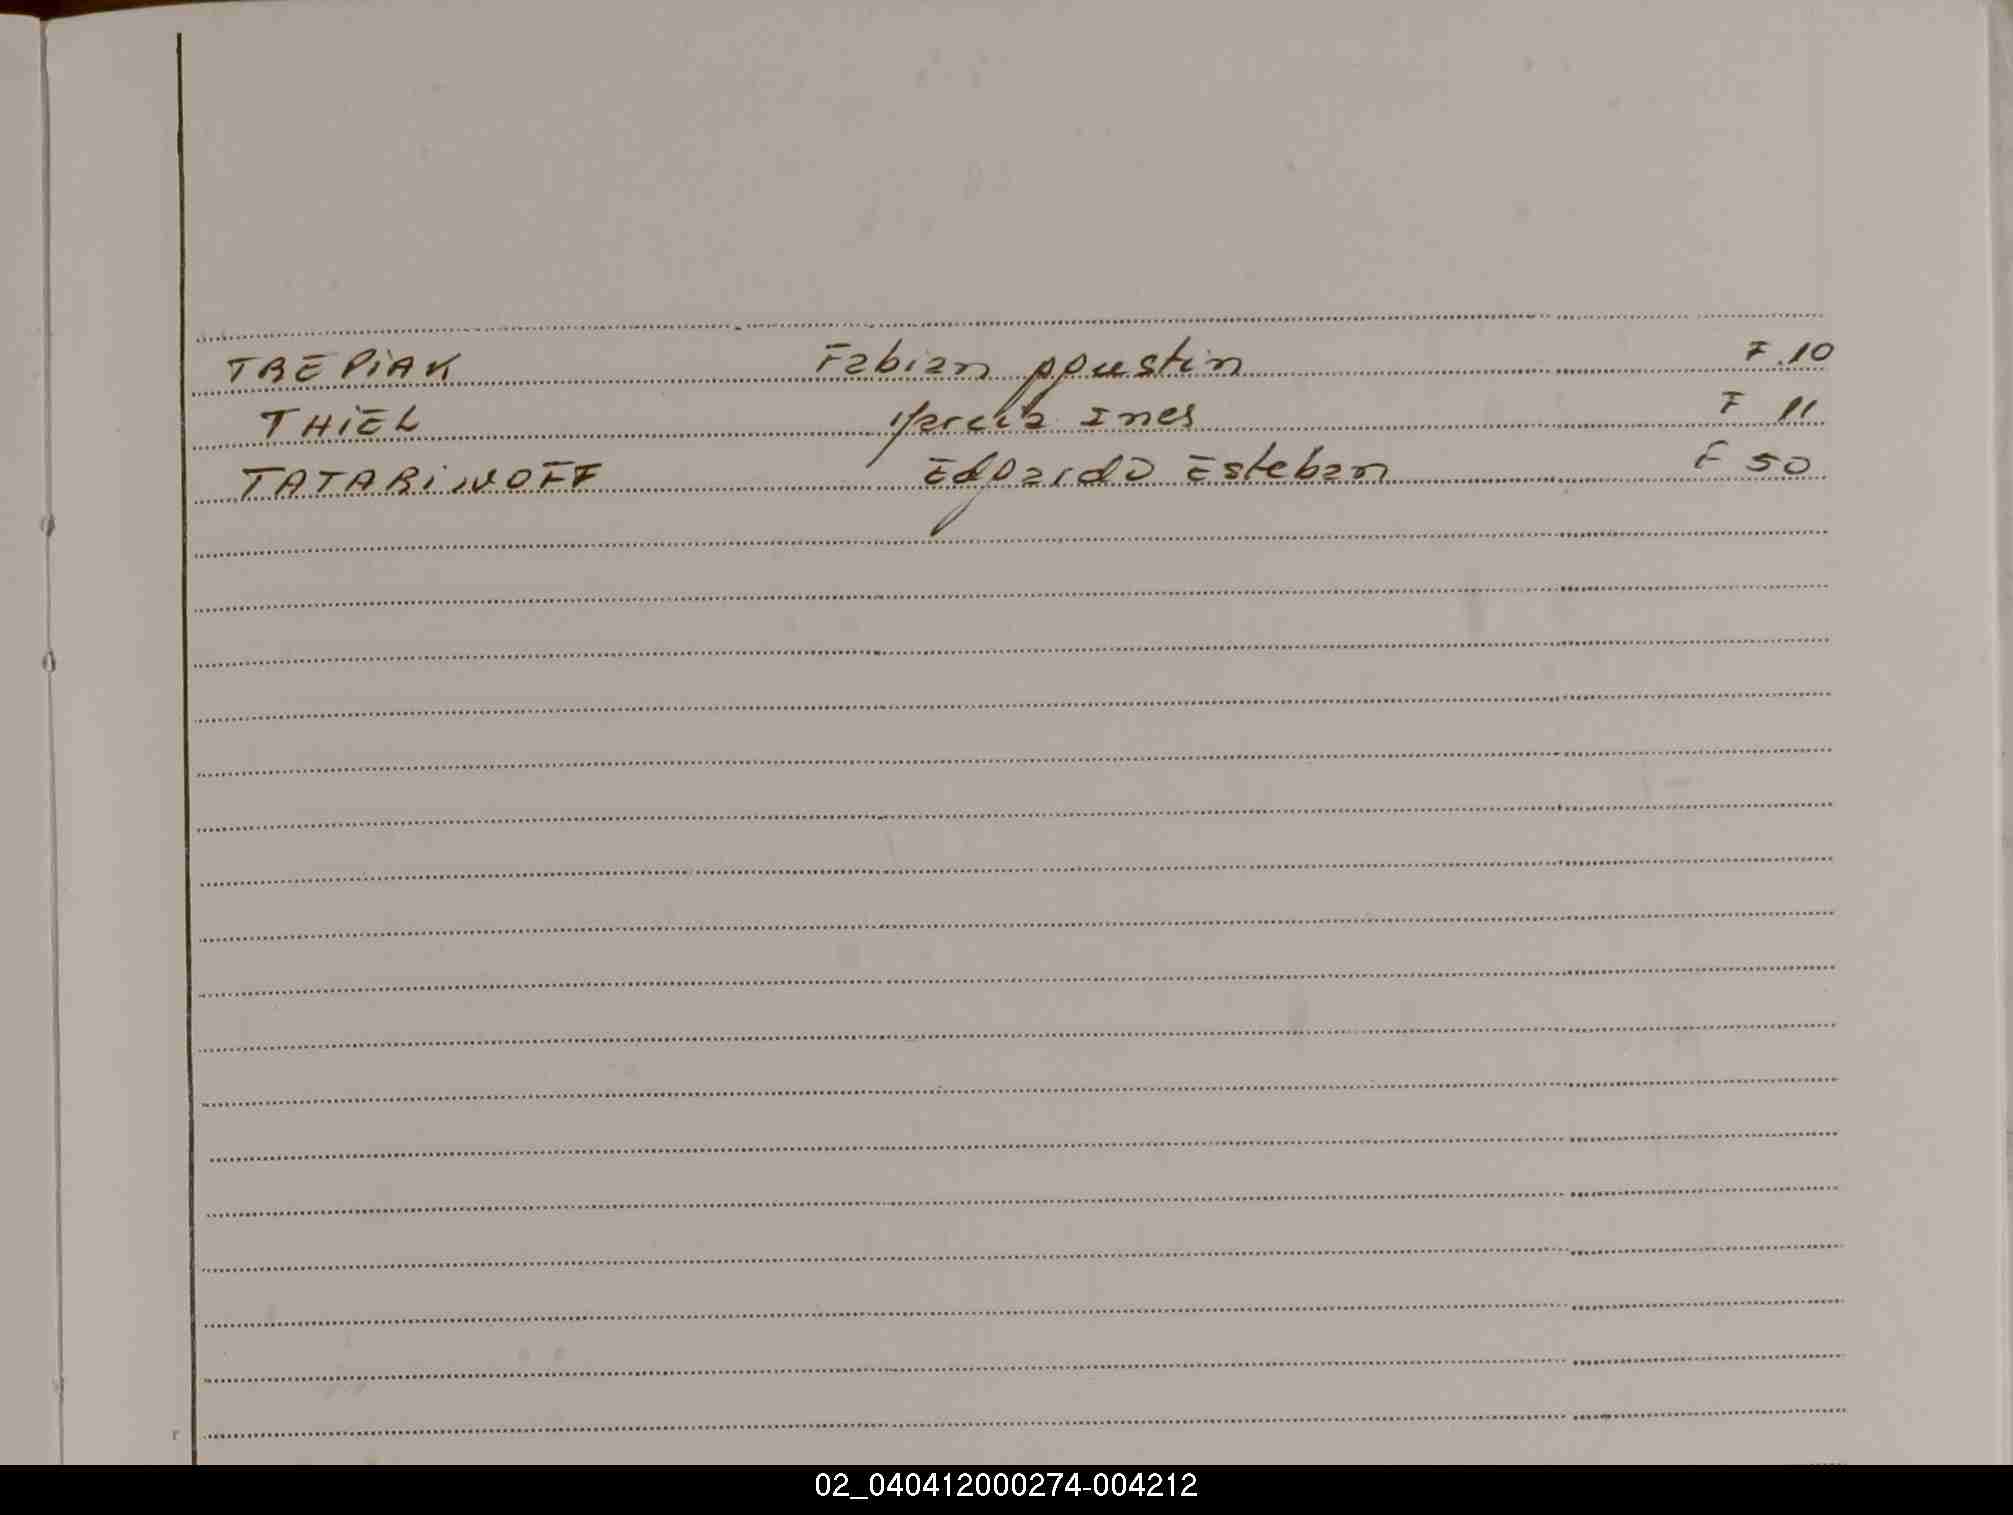 TREPIAK Fabian Agustin F.10
THIEL Marcia Ines F 11
TATARINOFF Edgardo Esteban F 50
02_040412000274-004212